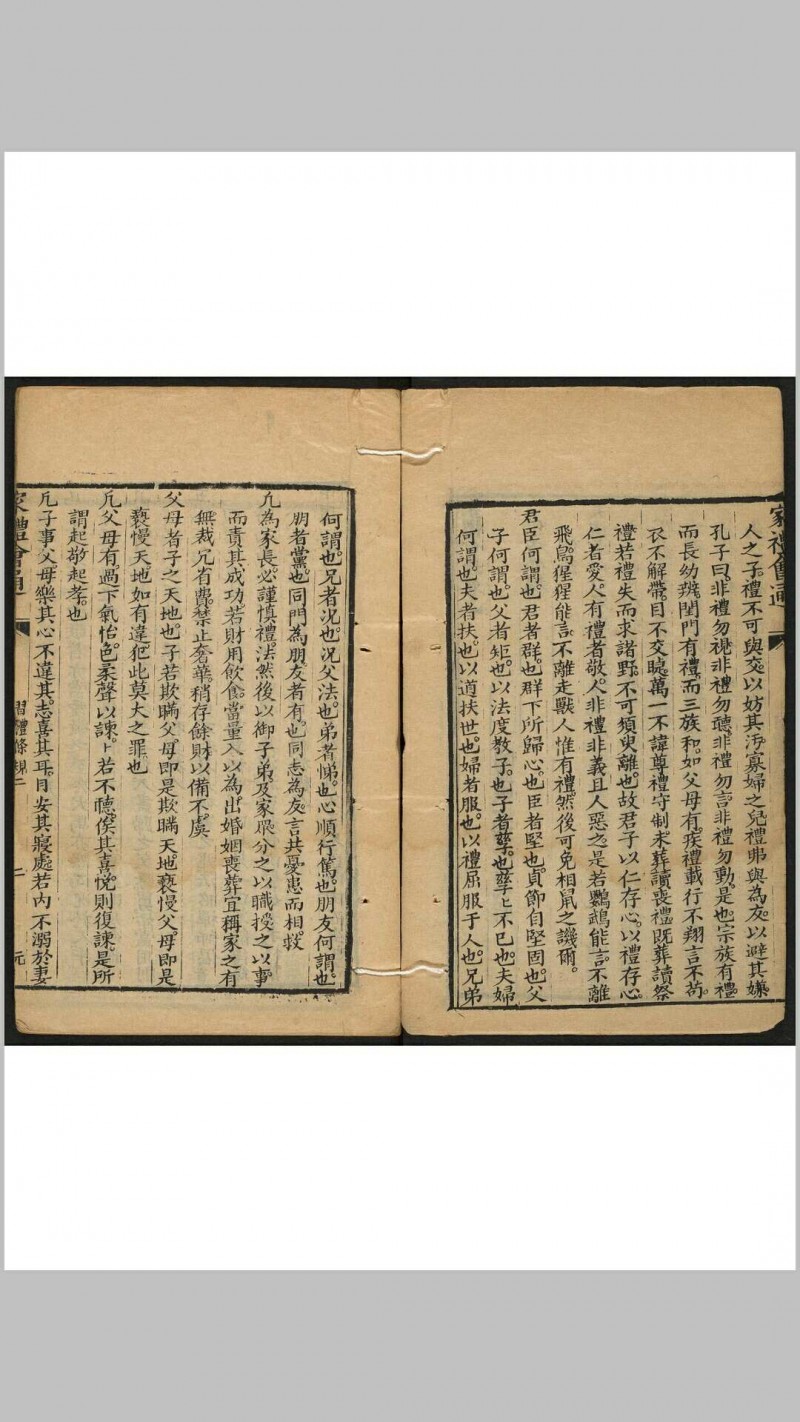 家禮會通
人之子禮不可與交以妨其汚寡婦之兒禮弗與為友以避其嫌
孔子曰非禮勿視非禮勿聽非禮勿言非禮勿動是也宗族有禮
而長幼辨閨門有禮而三族和如父母有疾禮載行不翔言不苟
衣不解帶目不交睫萬一不諱尊禮守制未葬讀喪禮既葬讀祭
禮若禮失而求諸野不可須臾離也故君子以仁存心以禮存心
仁者愛人有禮者敬人非禮非義且人惡之是若鸚鵡能言不離
飛鳥猩猩能言不離走獸人惟有禮然後可免相鼠之譏爾
君臣何謂也君者群也群下所歸心也臣者堅也貞節自堅固也父
子何謂也父者矩也以法度教子也子者孳也孳〻不已也夫婦
何謂也夫者扶也以道扶世也婦者服也以禮屈服于人也兄弟
何謂也兄者况也况父法也弟者悌也心順行篤也朋友何謂也
朋者黨也同門為朋友者有也同志為友言共憂患而相救
凢為家長必謹慎禮法然後以御子弟及家眾分之以職授之以事
而責其成功若財用飲食當量入以為出婚姻喪葬宜稱家之有
無裁冗省費禁止奢華稍存餘財以備不虞
父母者子之天地也子若欺瞞父母即是欺瞞天地褻慢父母即是
褻慢天地如有違犯此莫大之罪也
凢父母有過下氣怡色柔聲以諫〻若不聽俟其喜悅則復諫是所
謂起敬起孝也
凢子事父母樂其心不違其志喜其耳目安其寢處若內不溺於妻
家禮會通
習禮條規 二 元